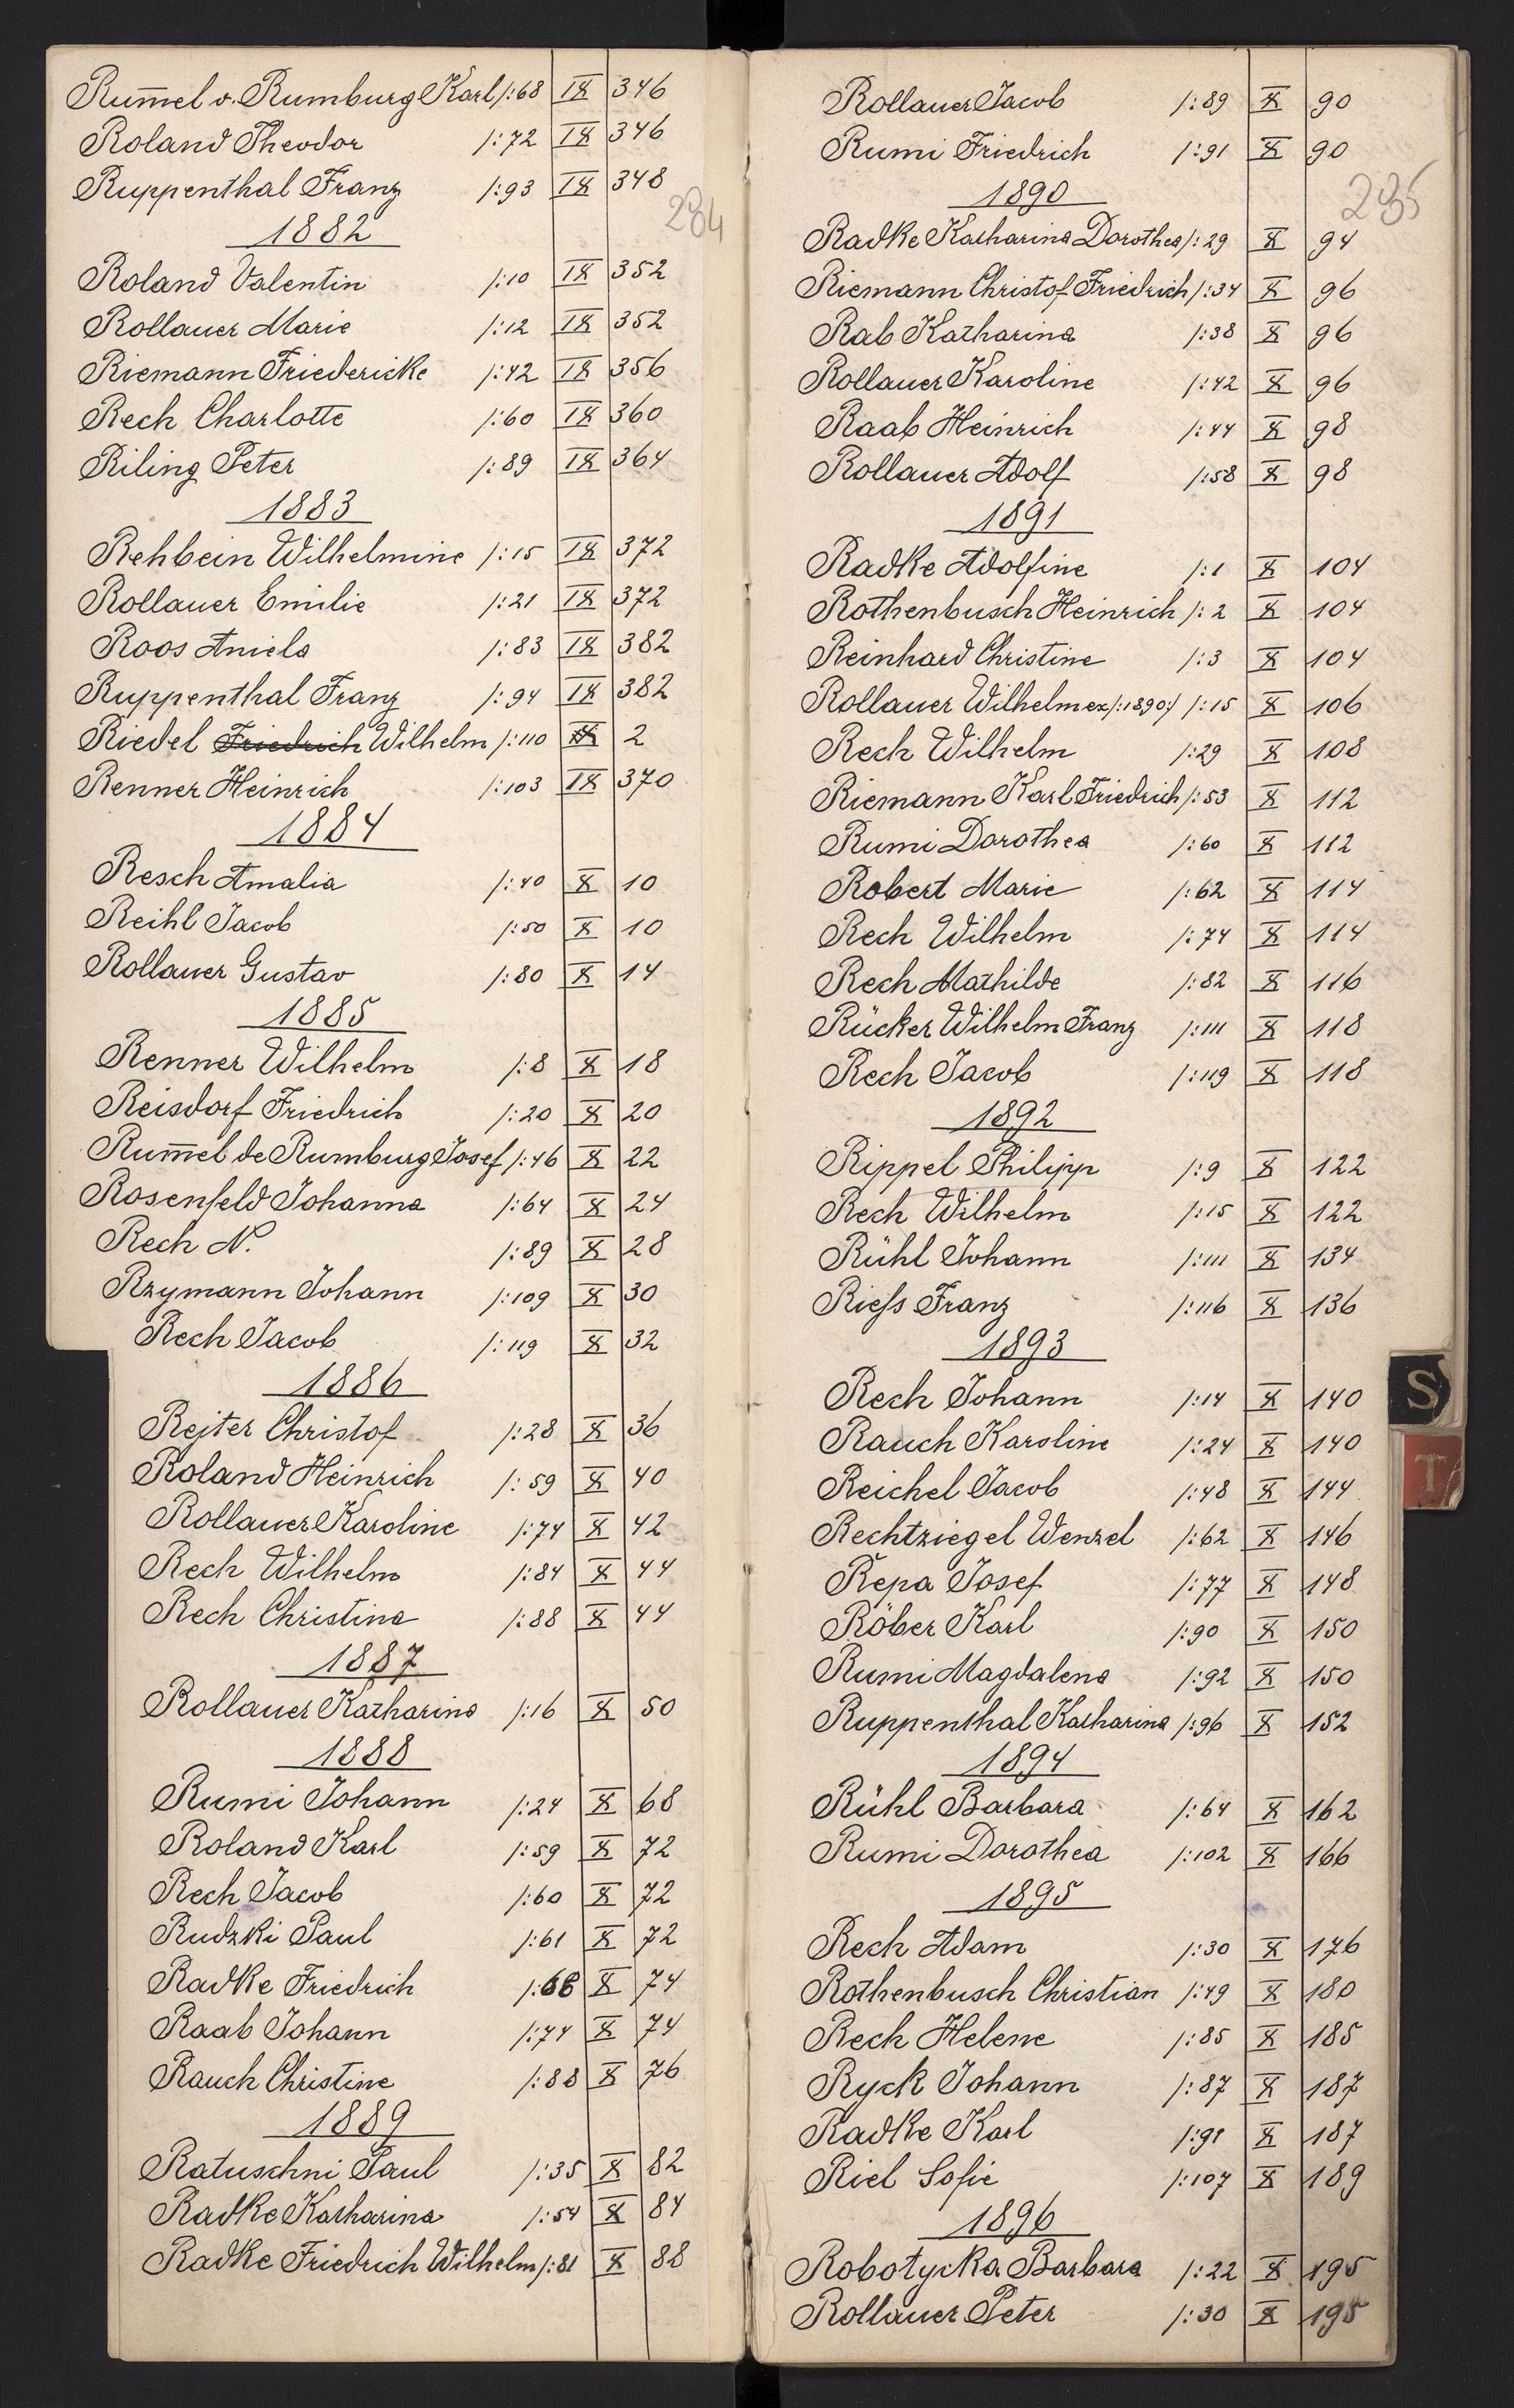 Rum̅el v. Rumburg Karl /:68 IX 346
Roland Theodor /:72 IX 346
Ruppenthal Franz /:93 IX 348
284
1882
Roland Valentin /:10 IX 352
Rollauer Marie /:12 IX 352
Riemann Friedericke /:42 IX 356
Rech Charlotte /:60 IX 360
Riling Peter /:89 IX 364
1883
Rehbein Wilhelmine /:15 IX 372
Rollauer Emilie /:21 IX 372
Roos Aniela /:83 IX 382
Ruppenthal Franz /:94 IX 382
Riedel Friedrich Wilhelm /:110 X 2
Renner Heinrich /:103 IX 370
1884
Resch Amalia /:40 X 10
Reihl Jacob /:50 X 10
Rollauer Gustav /:80 X 14
1885
Renner Wilhelm /:8 X 18
Reisdorf Friedrich /:20 X 20
Rum̅el de Rumburg Josef /:46 X 22
Rosenfeld Johanna /:64 X 24
Rech N. /:89 X 28
Rzymann Johann /:109 X 30
Rech Jacob /:119 X 32
1886
Rejter Christof /:28 X 36
Roland Heinrich /:59 X 40
Rollauer Karoline /:74 X 42
Rech Wilhelm /:84 X 44
Rech Christina /:88 X 44
1887
Rollauer Katharina /:16 X 50
1888
Rumi Johann /:24 X 68
Roland Karl /:59 X 72
Rech Jacob /:60 X 72
Rudzki Paul /:61 X 72
Radke Friedrich /:68 X 74
Raab Johann /:74 X 74
Rauch Christine /:88 X 76
1889
Ratuschni Paul /:35 X 82
Radke Katharina /:54 X 84
Radke Friedrich Wilhelm /:81 X 88
Rollauer Jacob /:89 X 90
Rumi Friedrich /:91 X 90
285
1890
Radke Katharina Dorothea /:29 X 94
Riemann Christof Friedrich /:34 X 96
Rab Katharina /:38 X 96
Rollauer Karoline /:42 X 96
Raab Heinrich /:44 X 98
Rollauer Adolf /:58 X 98
1891
Radke Adolfine /:1 X 104
Rothenbusch Heinrich /:2 X 104
Reinhard Christine /:3 X 104
Rollauer Wilhelm ex/:1890:/ /:15 X 106
Rech Wilhelm /:29 X 108
Riemann Karl Friedrich /:53 X 112
Rumi Dorothea /:60 X 112
Robert Marie /:62 X 114
Rech Wilhelm /:74 X 114
Rech Mathilde /:82 X 116
Rücker Wilhelm Franz /:111 X 118
Rech Jacob /:119 X 118
1892
Rippel Philipp /:9 X 122
Rech Wilhelm /:15 X 122
Rühl Johann /:111 X 134
Riefs Franz /:116 X 136
1893
Rech Johann /:14 X 140
Rauch Karoline /:24 X 140
Reichel Jacob /:48 X 144
Rechtziegel Wenzel /:62 X 146
Repa Josef /:77 X 148
Röber Karl /:90 X 150
Rumi Magdalena /:92 X 150
Ruppenthal Katharina /:96 X 152
1894
Rühl Barbara /:64 X 162
Rumi Dorothea /:102 X 166
1895
Rech Adam /:30 X 176
Rothenbusch Christian /:49 X 180
Rech Helene /:85 X 185
Ryck Johann /:87 X 187
Radke Karl /:91 X 187
Riel Sofie /:107 X 189
1896
Robotycka Barbara /:22 X 195
Rollauer Peter /:30 X 195
S
T